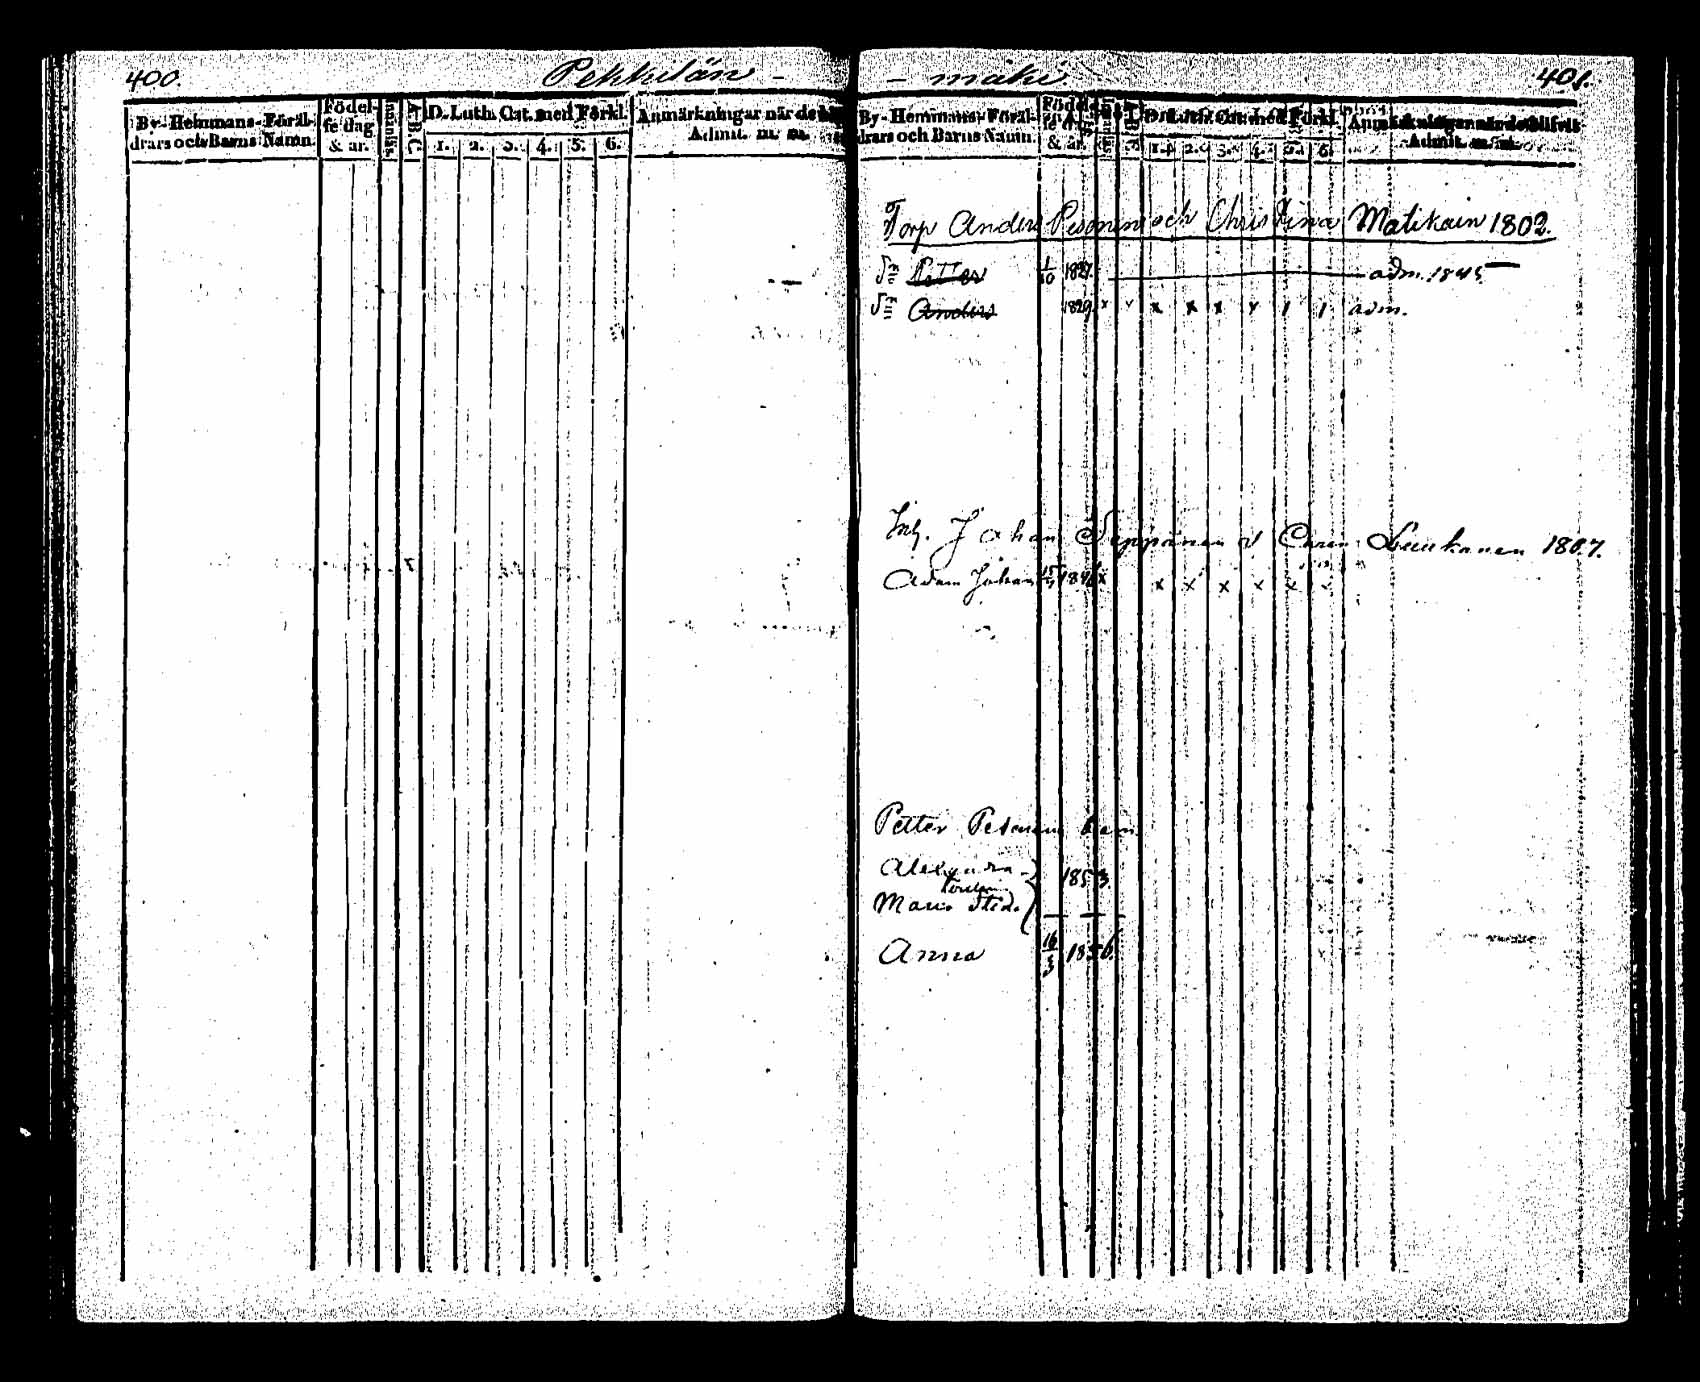 400.
Pekkilän -
By- Hemmans- Föräl-
drars och Barns Namn.
Födel-
se dag
& år.
Innanläs.
A-B-C.
D. Luth. Cat. med Förkl.
1. 2. 3. 4. 5. 6.
Anmärkningar när de
Admit. m. m.
- mäki
401.
By- Hemmans- Föräl-
drars och Barns Namn.
& år.
D. Luth. Cat. med Förkl.
1. 2. 3. 4. 5. 6.
Anmärkningar när de blifvit
Admit. m. m.
Torp Anders Pesonen och Christina Matikain 1802.
Sn Petter 1/10 1827. adm. 1845
Sn Anders 1829 x x x x x x 1 1 adm.
Inh. Johan Seppänen o Chris. Leukanen 1807.
Adam Johan 1846 x x x x x x x
Petter Pesonen barn
Alexandra 1853.
Maria Stid.
Anna 16/3 1856.